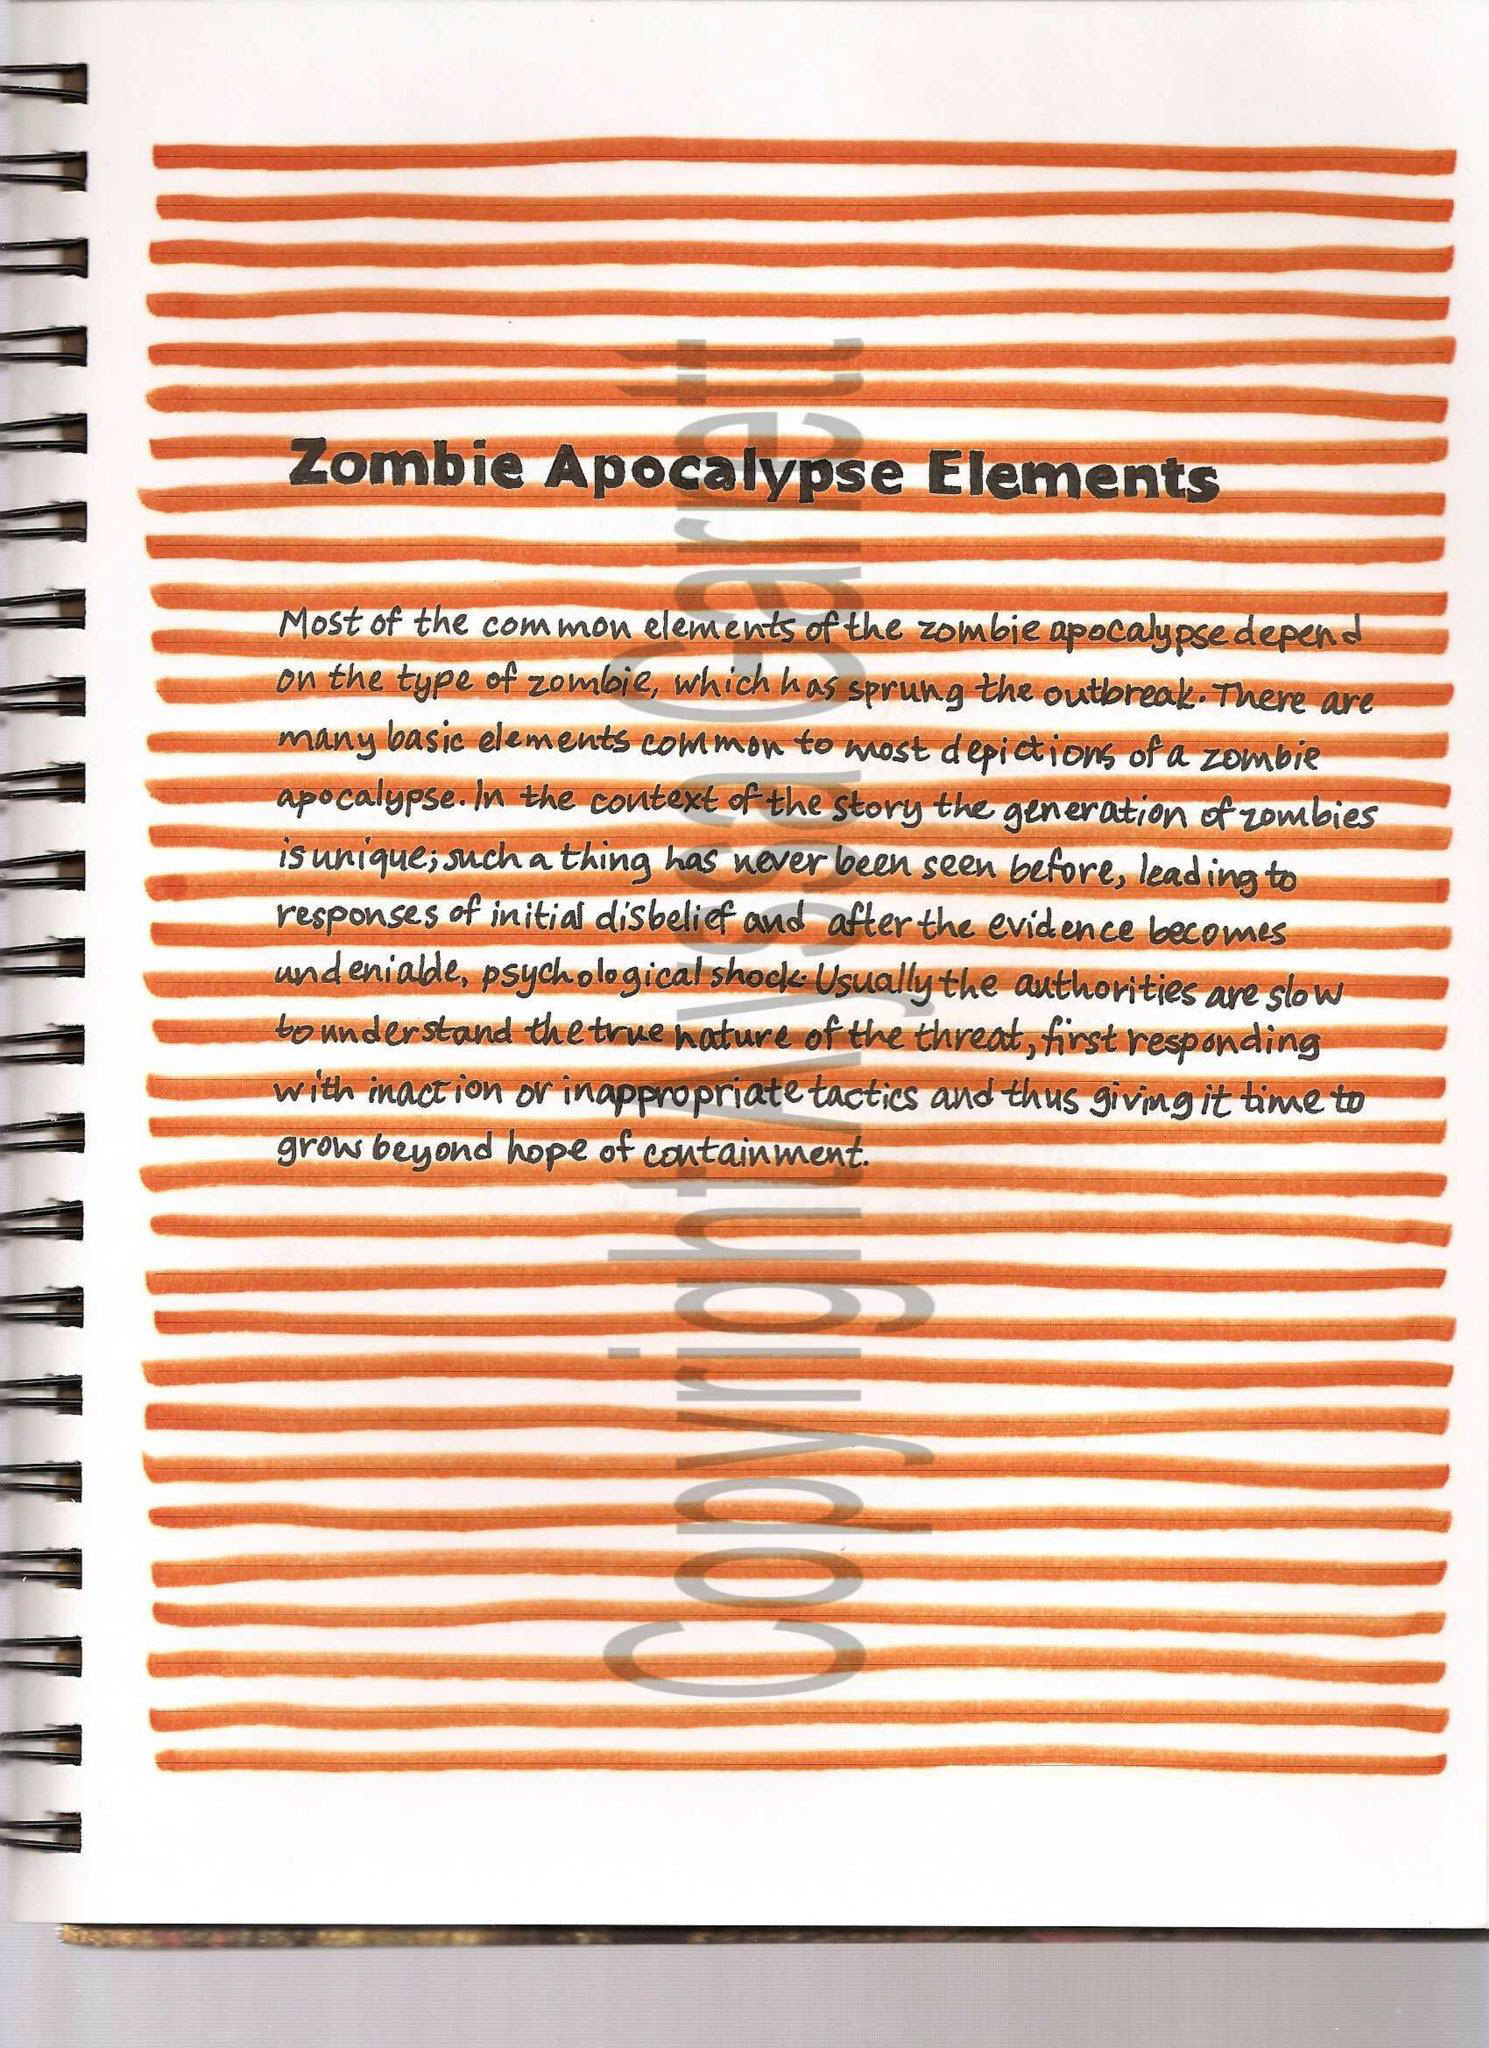 Zombie Apocalypse Elements
Most of the common elements of the zombie apocalypse depend
on the type of zombie, which has sprung the outbreak. There are
many basic elements common to most depictions of a zombie
apocalypse. In the context of the story the generation of zombies
is unique; such a thing has never been seen before, leading to
responses of initial disbelief and after the evidence becomes
undeniable, psychological shock. Usually the authorities are slow
to understand the true nature of the threat, first responding
with inaction or inappropriate tactics and thus giving it time to
grow beyond hope of containment.
Copyright Alyssa Garnet